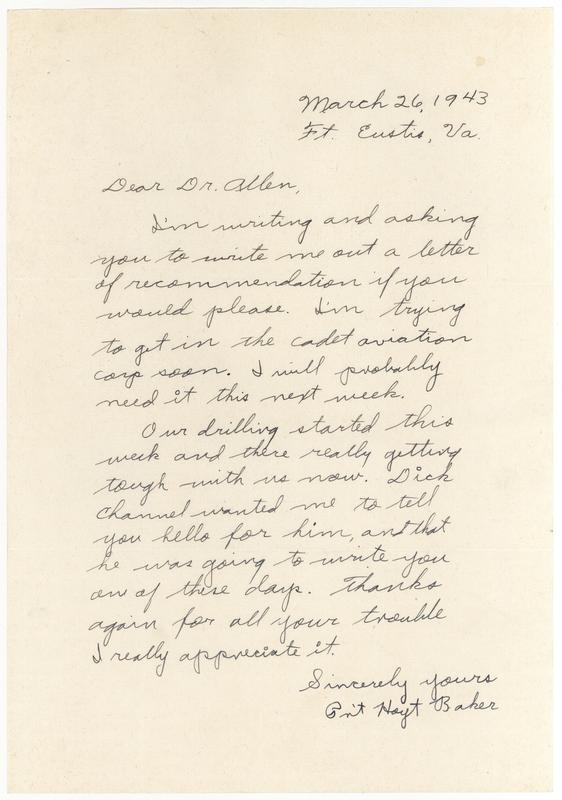 March 26, 1943
Ft. Eustis, Va.
Dear Dr. Allen,
I'm writing and asking
you to write me out a letter
of recommendation if you
would please. I'm trying
to get in the cadet aviation
corp soon. I will probably
need it this next week.
Our drilling started this
week and there really getting
tough with us now. Dick
Channel wanted me to tell
you hello for him, and that
he was going to write you
one of these days. Thanks
again for all your trouble
I really appreciate it.
Sincerely yours
Pvt Hoyt Baker